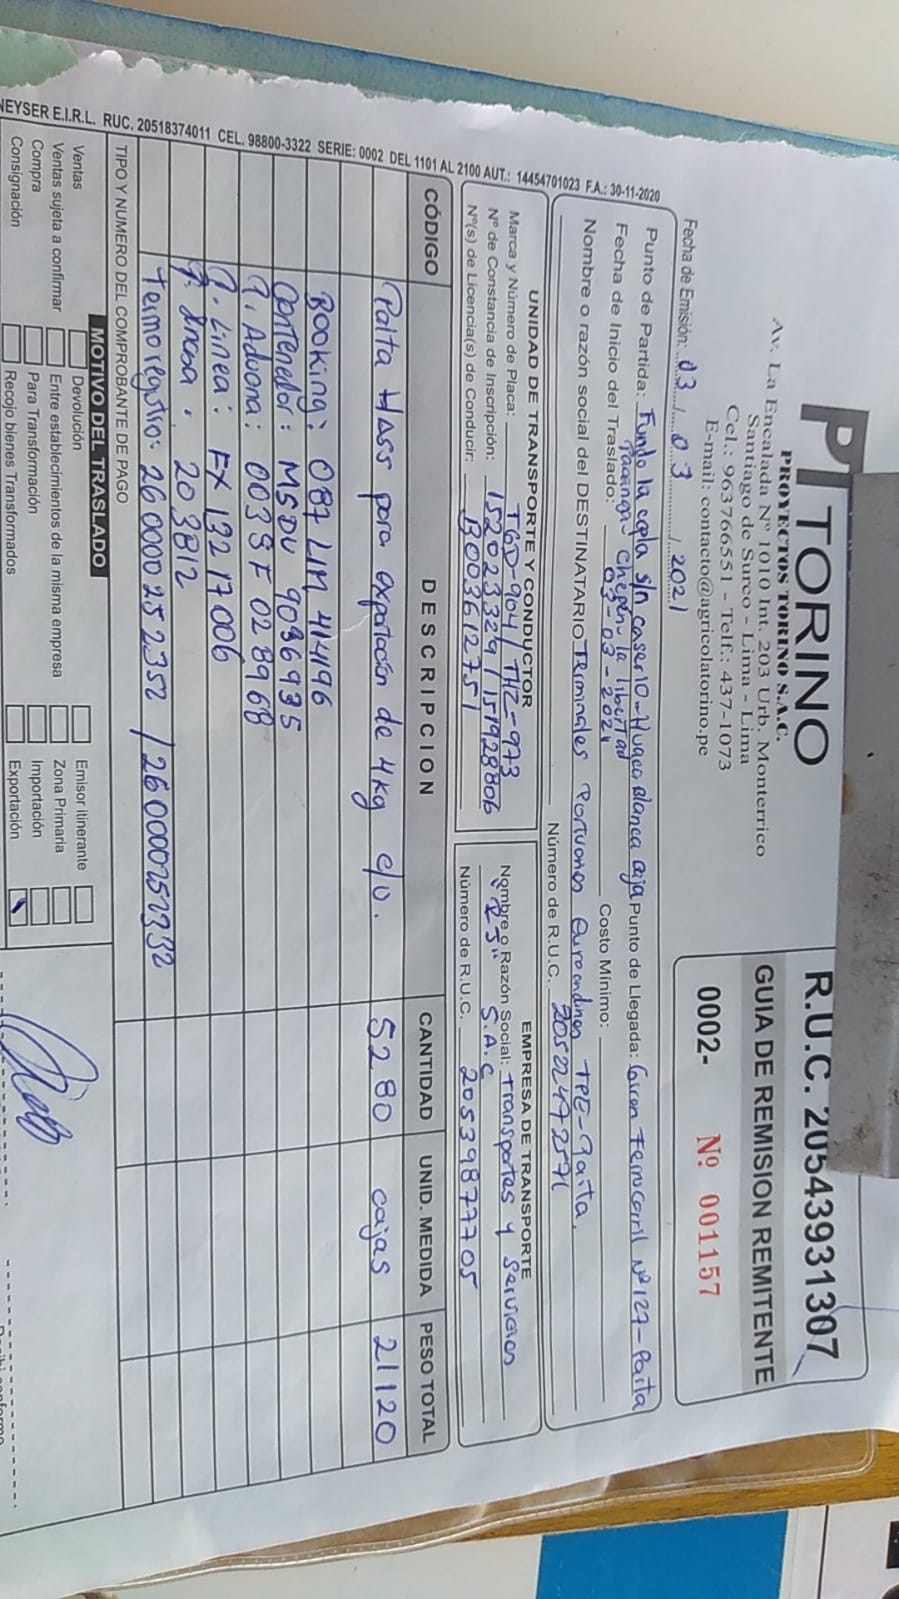 PT TORINO
PROYECTOS TORINO S.A.C.
Av. La Encalada Nº 1010 Int. 203 Urb. Monterrico
Santiago de Surco - Lima - Lima
Cel.: 963766551 - Telf.: 437-1073
E-mail: contacto@agricolatorino.pe
R.U.C. 20543931307
GUIA DE REMISION REMITENTE
0002- Nº 001157
Fecha de Emisión: 03 / 03 / 2021
Punto de Partida: Fundo la copla s/n caserio - Huaca blanca baja
Pacanga Chepén la libertad
Punto de Llegada: Ferrocarril Nº 127 - Paita
Fecha de Inicio del Traslado: 03 - 03 - 2021
Costo Mínimo:
Nombre o razón social del DESTINATARIO Terminales Portuarios Euroandinos TPE - Paita.
Número de R.U.C. 20522472571
UNIDAD DE TRANSPORTE Y CONDUCTOR
Marca y Número de Placa: T6D-904 / THZ-973
Nº de Constancia de Inscripción: 152023329 / 151928806
Nº(s) de Licencia(s) de Conducir: B003612751
EMPRESA DE TRANSPORTE
Nombre o Razón Social: Transportes y Servicios
"RJ" S.A.C
Número de R.U.C. 20539877705
CÓDIGO DESCRIPCION CANTIDAD UNID. MEDIDA PESO TOTAL
Palta Hass para exportación de 4kg c/u. 5280 cajas 21120
Booking: 087LIM 414196
Contenedor: MSDU 9036935
P. Aduana: 003SF028968
P. Linea: FX13217006
203812
Termoregistro: 26000252352 /
TIPO Y NUMERO DEL COMPROBANTE DE PAGO
NEYSER E.I.R.L. RUC. 20518374011 CEL. 98800-3322 SERIE: 0002 DEL 1101 AL 2100 AUT.: 14454701023 F.A.: 30-11-2020
MOTIVO DEL TRASLADO
Ventas Devolución Emisor itinerante
Ventas sujeta a confirmar Entre establecimientos de la misma empresa Zona Primaria
Compra Para Transformación Importación
Consignación Recojo bienes Transformados Exportación